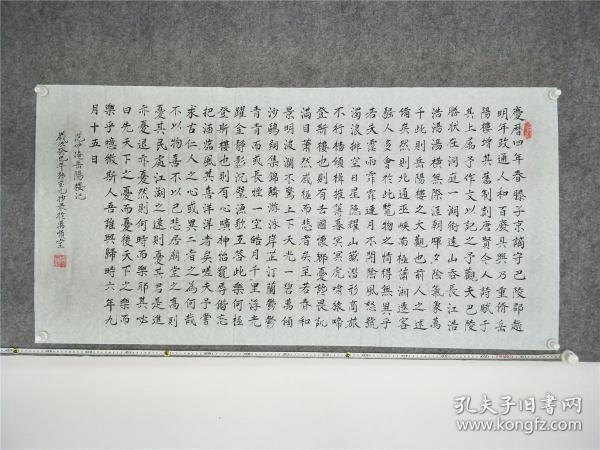 慶曆四年春滕子京謫守巴陵郡越
明年政通人和百廢具興乃重脩岳
陽樓增其舊制刻唐賢今人詩賦于
其上屬予作文以記之予觀夫巴陵
勝狀在洞庭一湖銜遠山吞長江浩
浩湯湯橫無際涯朝暉夕陰氣象萬
千此則岳陽樓之大觀也前人之述
備矣然則北通巫峽南極瀟湘遷客
騷人多會於此覽物之情得無異乎
若夫霪雨霏霏連月不開陰風怒號
濁浪排空日星隱耀山嶽潛形商旅
不行檣傾楫摧薄暮冥冥虎嘯猿啼
登斯樓也則有去國懷鄉憂讒畏譏
滿目蕭然感極而悲者矣至若春和
景明波瀾不驚上下天光一碧萬頃
沙鷗翔集錦鱗游泳岸芷汀蘭鬱鬱
青青而或長煙一空皓月千里浮光
躍金靜影沉璧漁歌互答此樂何極
登斯樓也則有心曠神怡寵辱偕忘
把酒臨風其喜洋洋者矣嗟夫予嘗
求古仁人之心或異二者之為何哉
不以物喜不以己悲居廟堂之高則
憂其民處江湖之遠則憂其君是進
亦憂退亦憂然則何時而樂耶其必
曰先天下之憂而憂後天下之樂而
樂乎噫微斯人吾誰與歸時六年九
月十五日
范仲淹岳陽樓記
歲次癸巳年
孔夫子旧书网